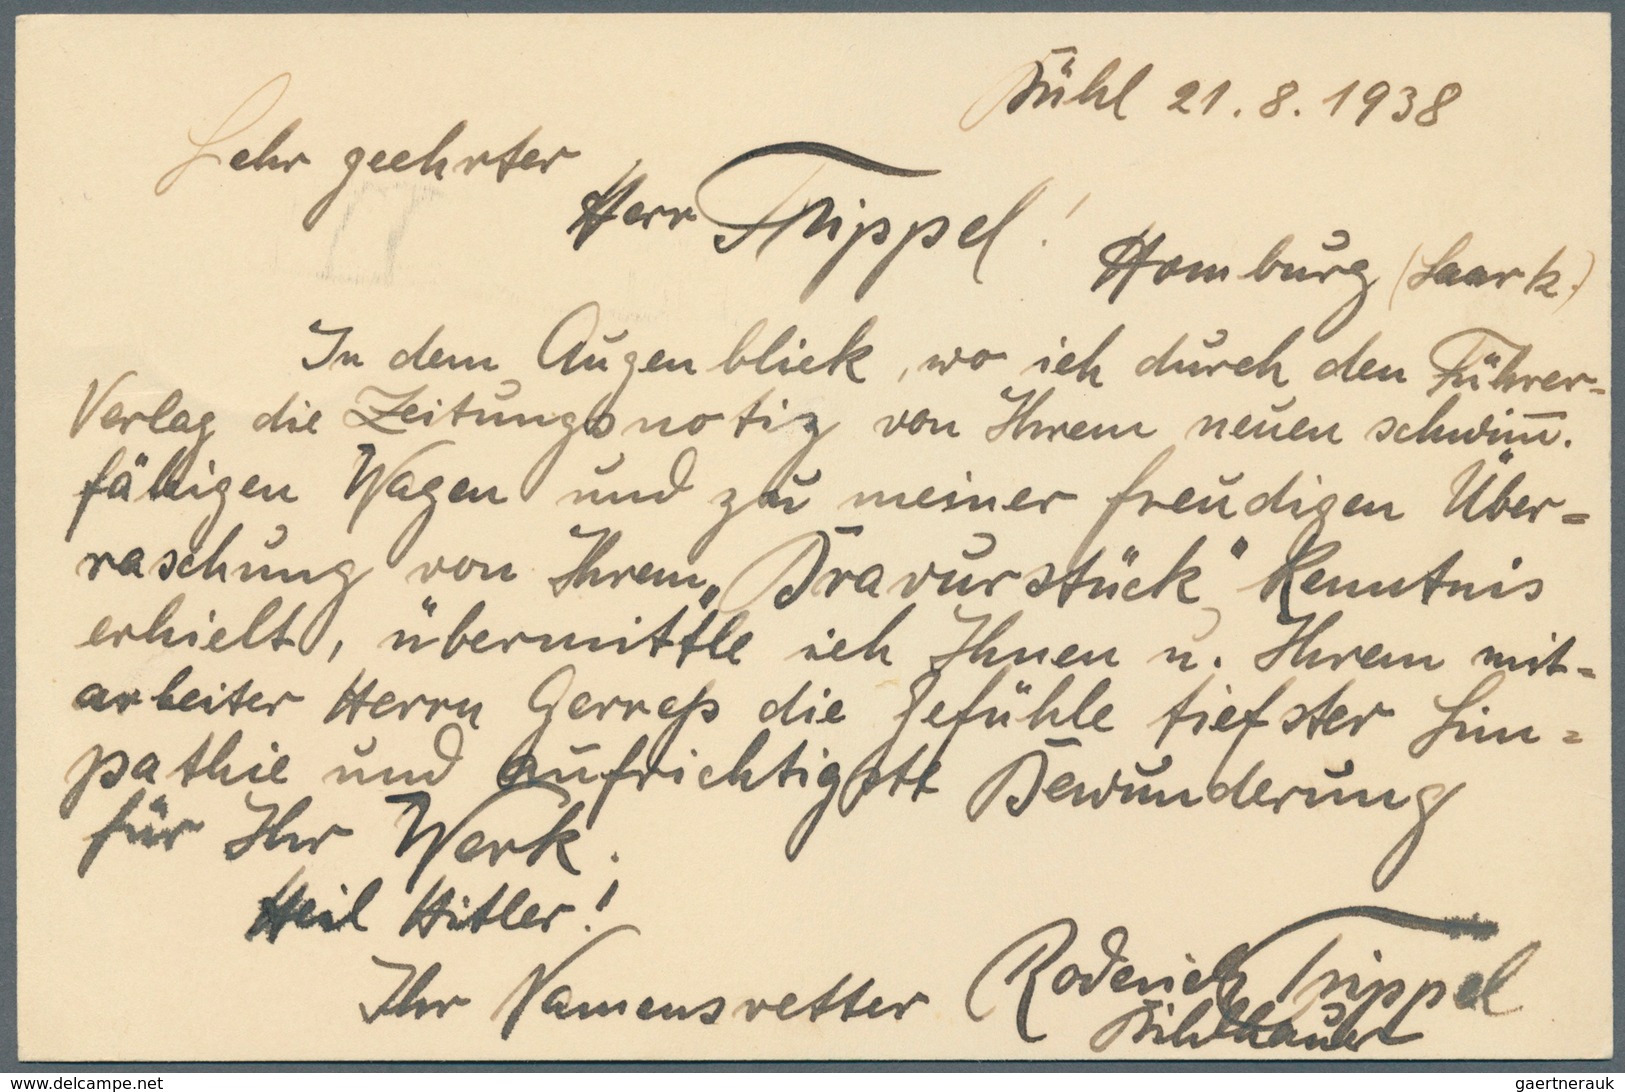 Bühl 21.8.1938
Sehr geehrter
Herr Trippel!
Homburg (Saark.)
In dem Augenblick, wo ich durch den Führer-
Verlag die Zeitungsnotiz von Ihrem neuen schwim̅.
fähigen Wagen und zu meiner freudigen Über=
raschung von Ihrem „Bravurstück" Kenntnis
erhielt, übermittle ich Ihnen u. Ihrem mit=
arbeiter Herrn Gerreß die Gefühle tiefster Sim=
pathie und aufrichtigste Bewunderung
für Ihr Werk.
Heil Hitler!
Ihr Namensvetter Roderich Trippel
Bildhauer
www.delcampe.net
gaertnerauk